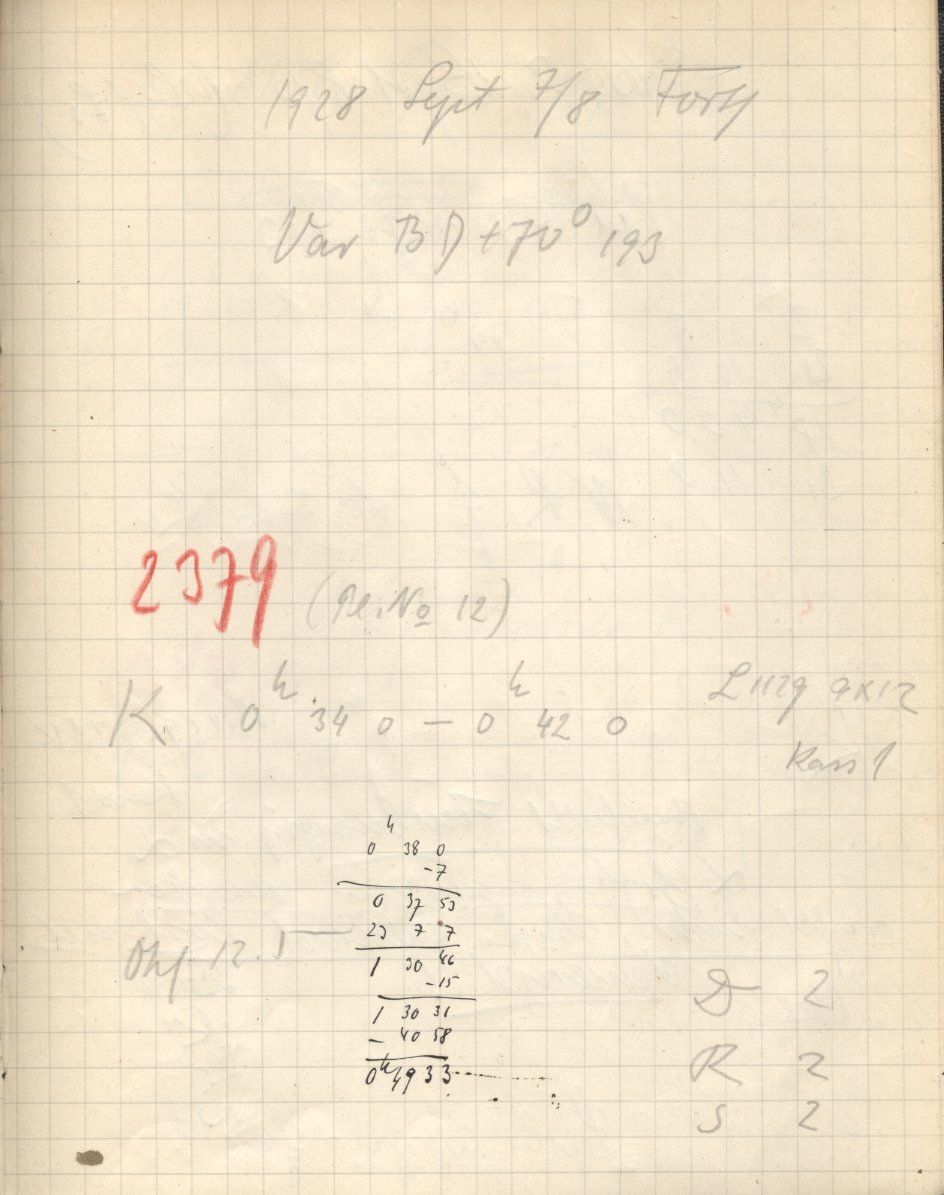 1928 Sept 7/8 Forts
Var BD +70° 193
2379 (Pl. No 12)
K 0h 34 0 — 0h 42 0
L 1129 9x12
Kass 1
0h 38 0
-7
0 37 53
23 7 7
1 30 46
-15
1 30 31
- 40 58
0h 49 33
12.5
D 2
R 2
S 2